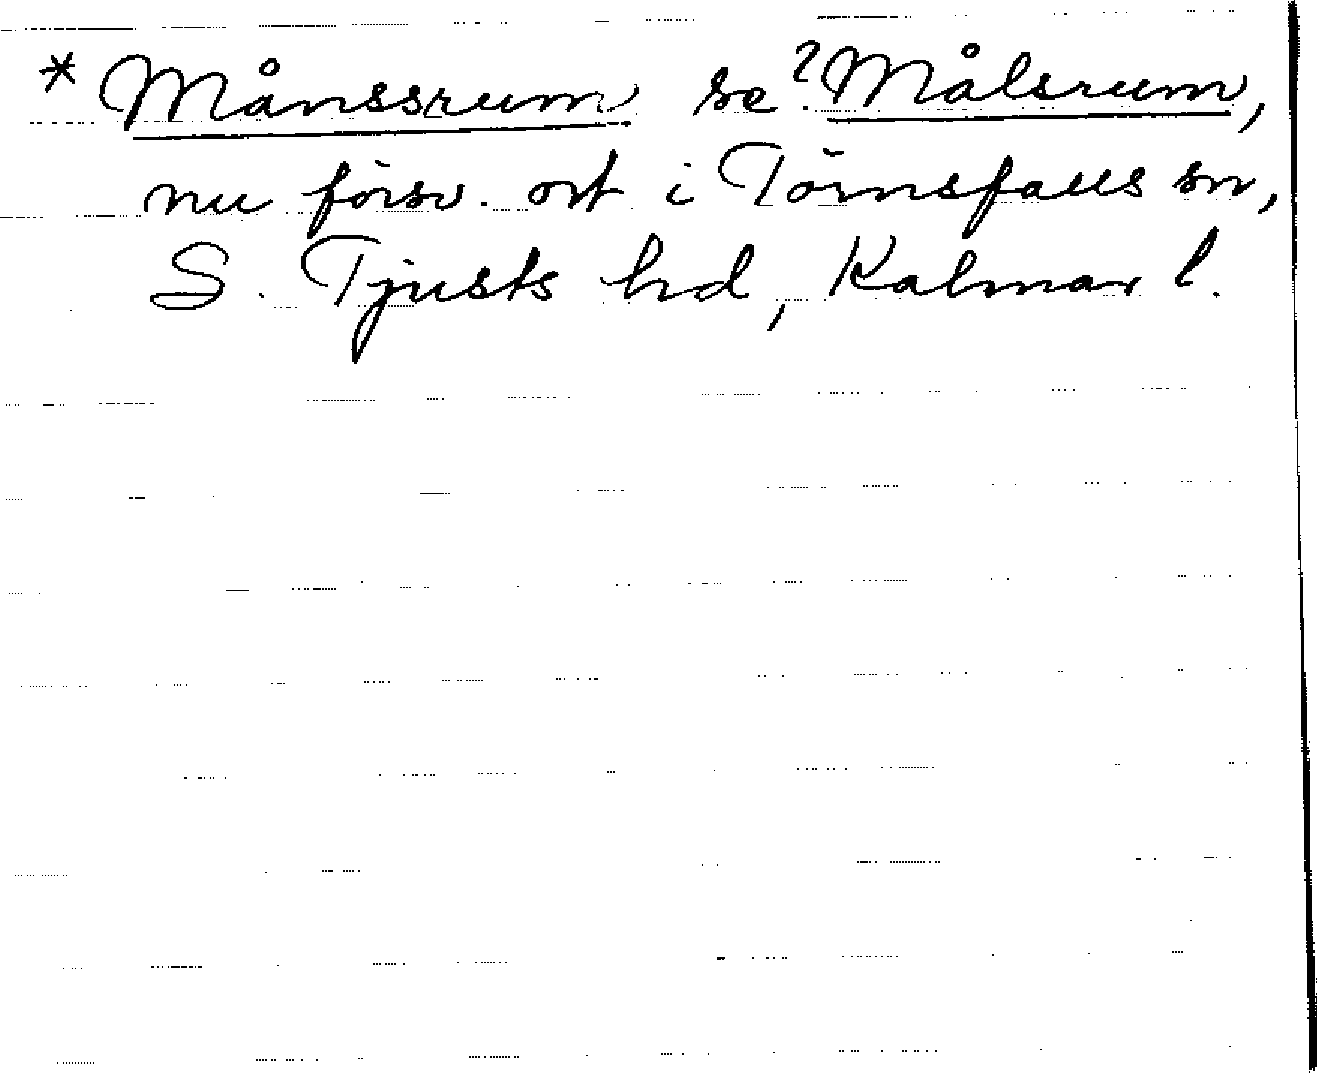 * Månssrum se ? Målsrum,
nu försv. ort i Törnsfalls sn,
S. Tjusts hd, Kalmar l.